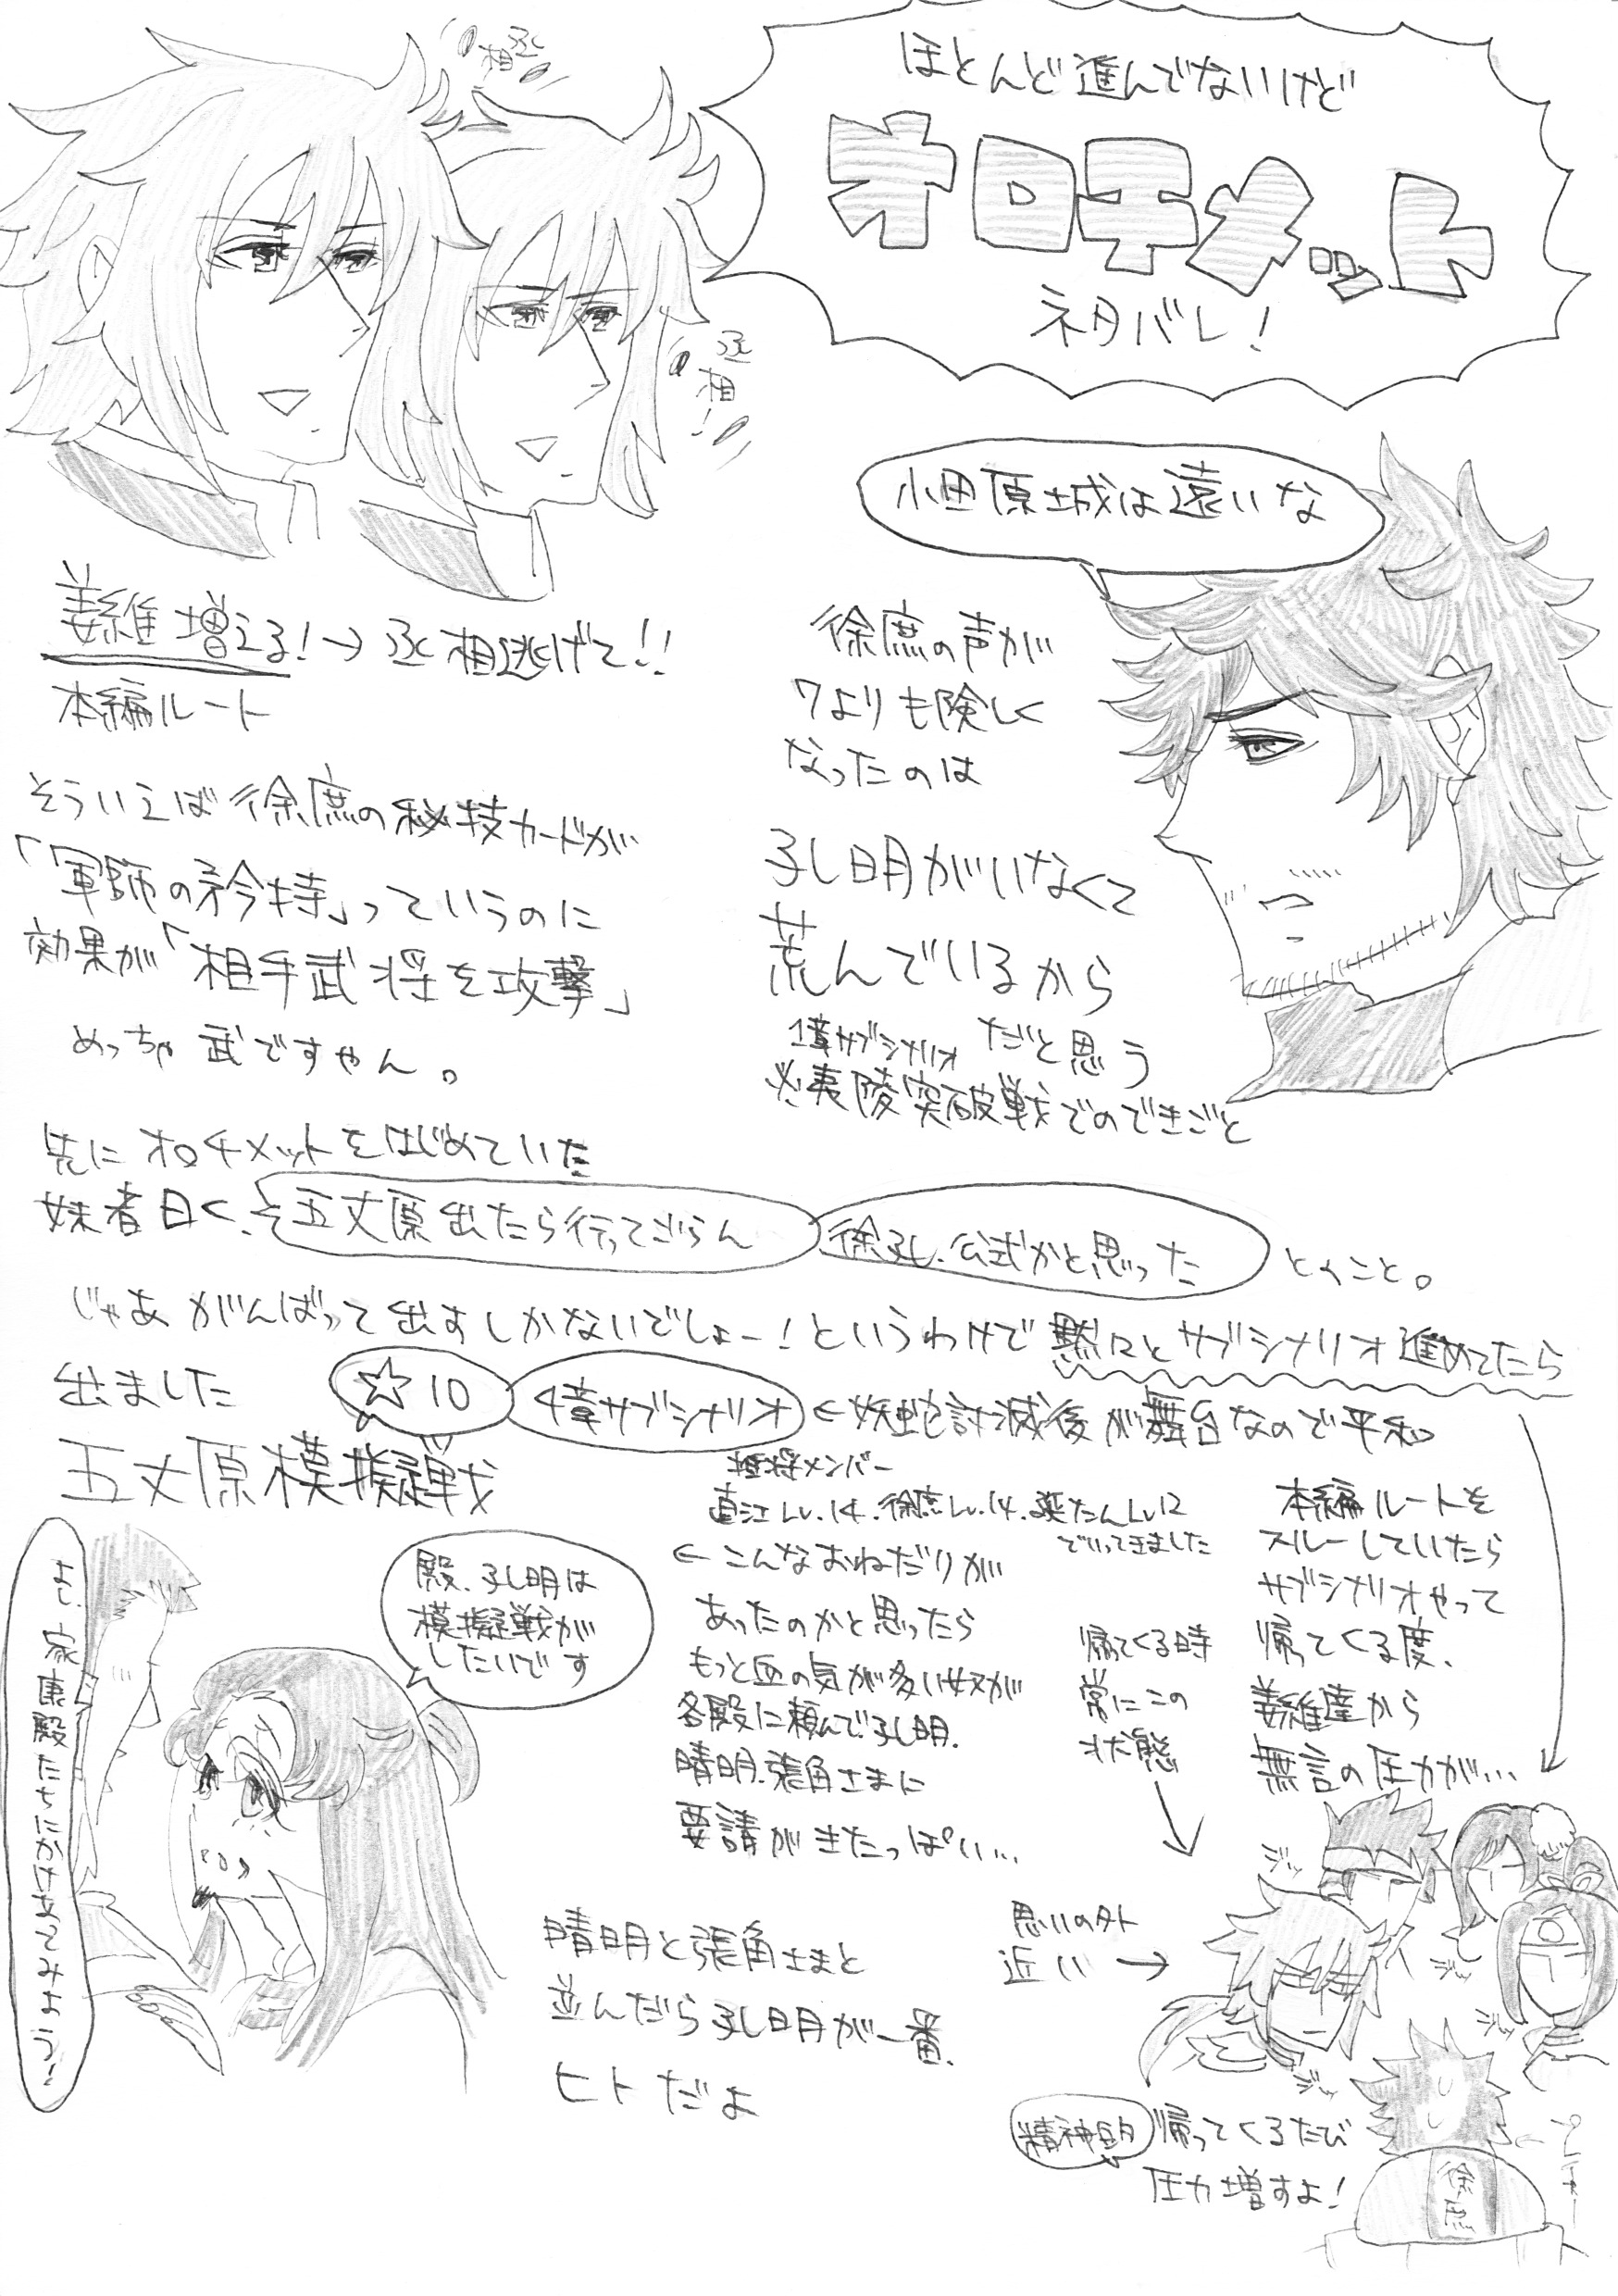 ほとんど進んでないけど
オロチメット
ネタバレ!
丞相
丞相!
小田原城は遠いな
姜維増える!→丞相逃げて!!
本編ルート
そういえば徐庶の秘技カードが
「軍師の矜持」っていうのに
効果が「相手武将を攻撃」
めっちゃ武ですやん。
徐庶の声が
7よりも険しく
なったのは
孔明がいなくて
荒んでいるから
だと思う
1章サブシナリオ
※夷陵突破戦でのできごと
先にオロチメットをはじめていた
妹者曰く、
五丈原出たら行ってごらん
徐孔、公式かと思った
とのこと。
じゃあがんばって出すしかないでしょー!というわけで黙々とサブシナリオ進めてたら
出ました
☆10
4章サブシナリオ
←妖蛇討滅後が舞台なので平和
五丈原模擬戦
メンバー
直江Lv.14.徐庶Lv.14. Lv12
でいってきました
殿、孔明は
模擬戦が
したいです
よし、家康殿たちにかけあってみよう!
←こんなおねだりが
あったのかと思ったら
もっと血の気が多い奴が
各殿に頼んで、孔明.
晴明.張角さまに
要請がきたっぽい…
晴明と張角さまと
並んだら孔明が一番、
ヒトだよ
本編ルートを
スルーしていたら
サブシナリオやって
帰ってくる度、
姜維達から
無言の圧力が…
帰ってくる時
常にこの
状態
思いの外
近い→
ジッ
ジッ
ジッ
ジッ
徐庶
帰ってくるたび
圧力増すよ!